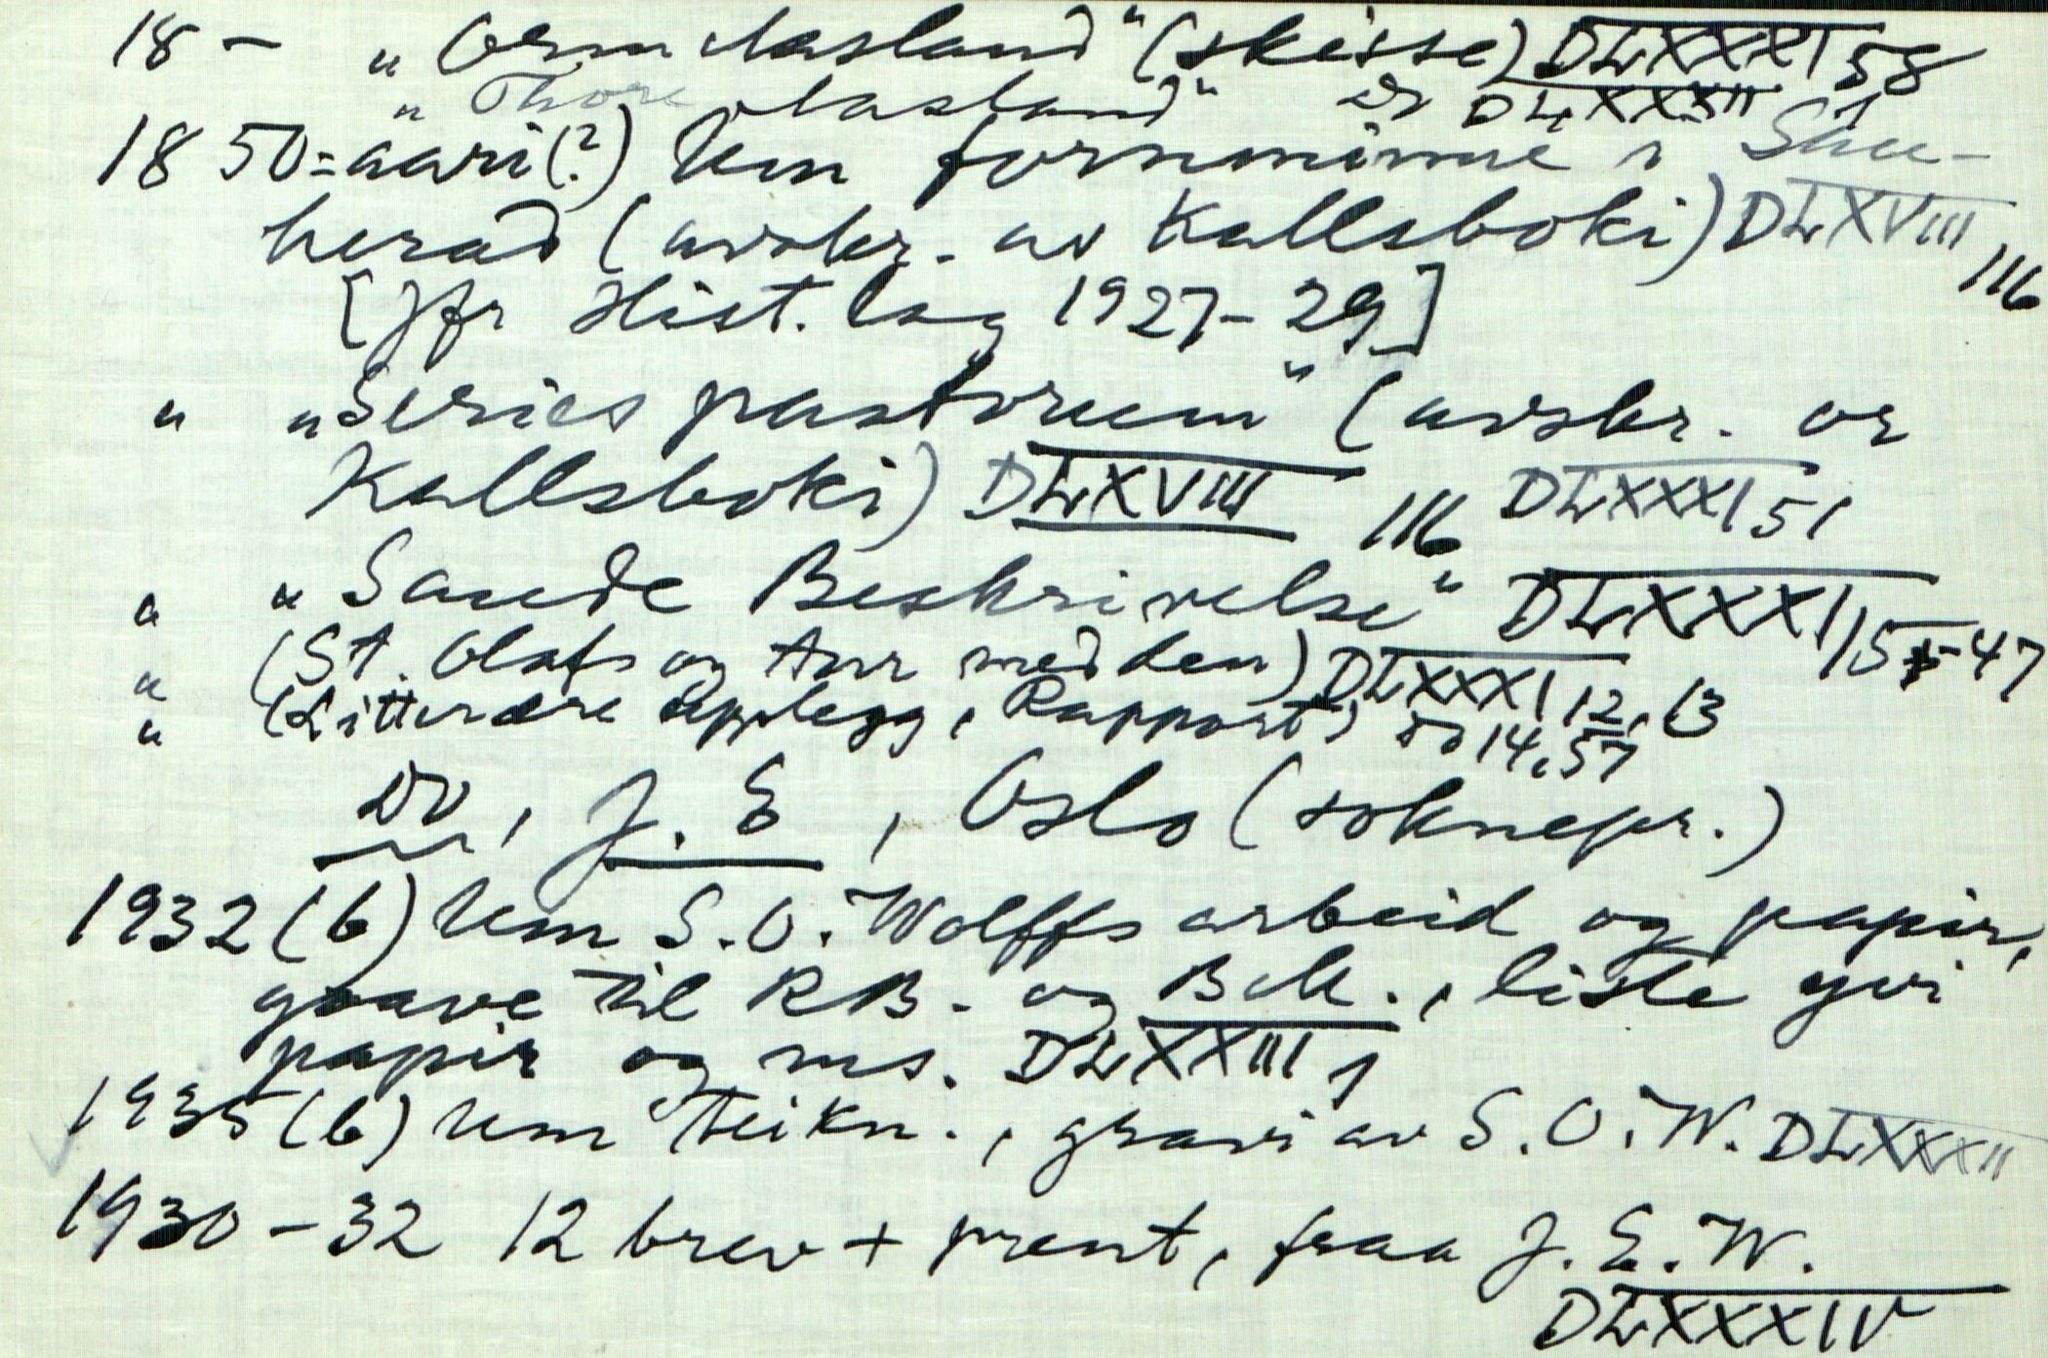 18 - „Orm Aasland" (skisse) DLXXXI 58
„Thore Aasland" Do DLXXXII 1
1850-aari(?) Um fornminne i Sau-
herad (avskr. av Kallsboki) DLXVIII 116
[Jfr Hist. lag 1927-29]
" „Series pastorum" (avskr. or
Kallsboki) DLXVIII 116 DLXXXI 51
" „Saude Beskrivelse" DLXXXI/15-47
" (St. Olafs og med den) DLXXXI 12, 13
" (Litterære Upplegg, Rapport) Do 14, 57
Do, J. E, Oslo (soknepr.)
1932 (b) Um S. O. Wolffs arbeid og papir,
gaave til RB. og , liste yvi
papir og ms. DLXXIII 1
1935 (b) Um Teikn., gravi av S. O. W. DLXXXII
1930-32 12 brev + prent, fraa J. E. W.
DLXXXIV